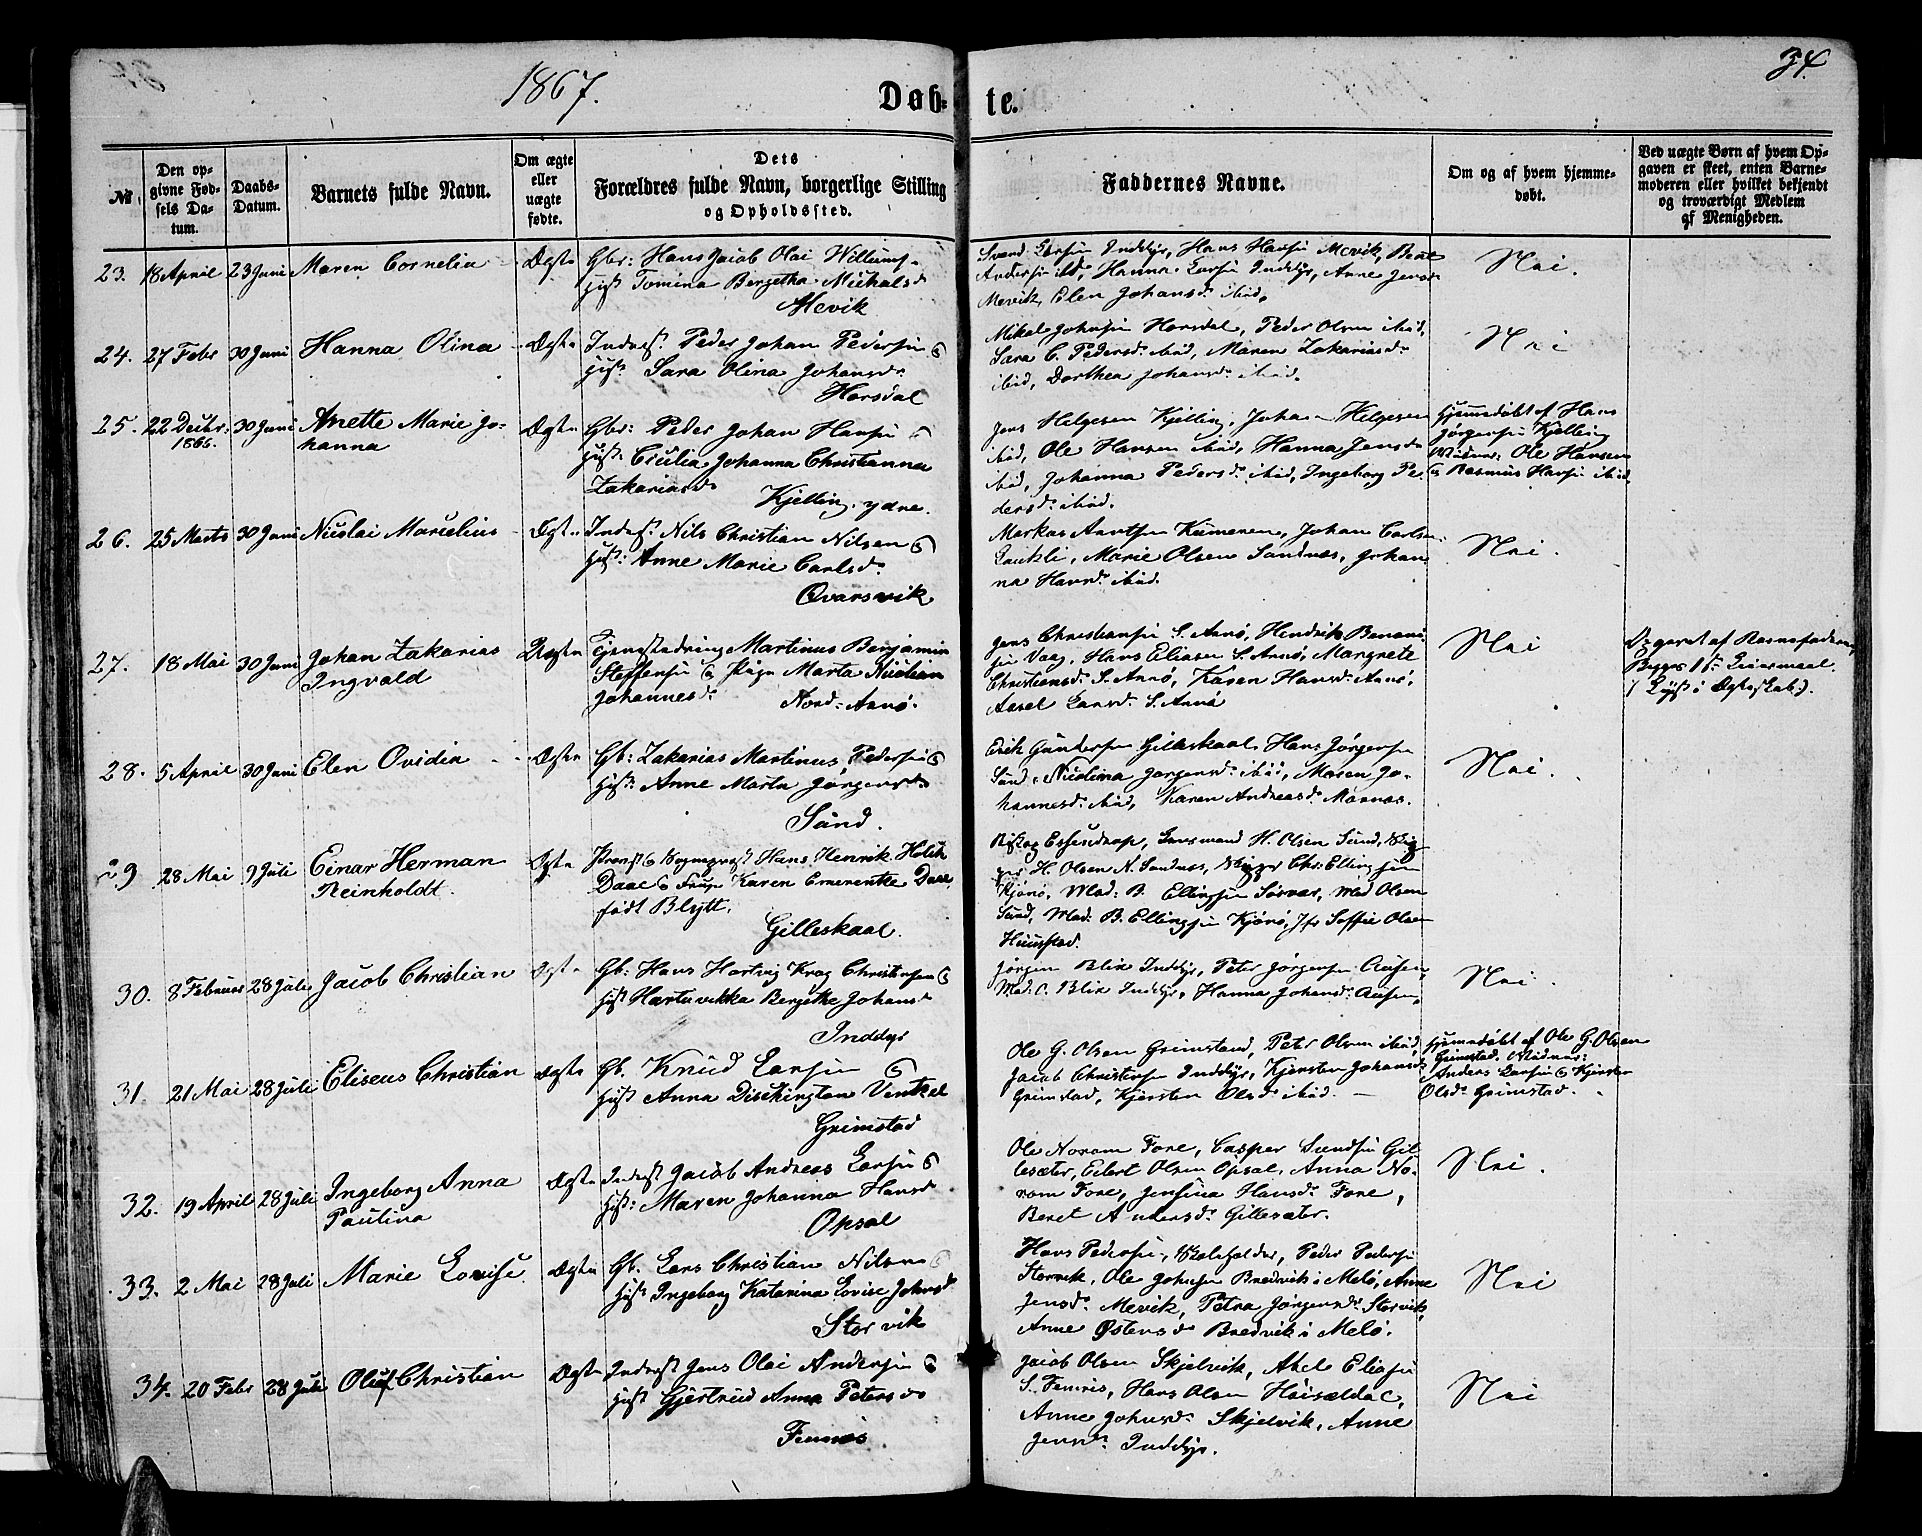 1867.
Døb-te.
34.
№
Den opgivne Fødsels Datum.
Daabs-Datum.
Barnets fulde Navn.
Om ægte eller uægte fødte.
Dets Forældres fulde Navn, borgerlige Stilling og Opholdssted.
Faddernes Navne.
Om og af hvem hjemmedøbt.
Ved uægte Børn af hvem Opgaven er skeet, enten Barnemoderen eller hvilket bekjendt og troværdigt Medlem af Menigheden.
23. 18 April 23 Juni Maren Cornelia Ægte Gbr: Hans Jacob Olai Willums-
Hust Tomina Bergetha Michalsd
Mevik
Svend Larsen Inddyr, Hans Hansen Mevik, Beret
Andersen ibid, Hanna Larsen Inddyr, Anne Jensd
Mevik, Elen Johansd. ibid.
Nei.
24. 27 Febr 30 Juni Hanna Olina Ægte Inderst. Peder Johan Pedersen &
Hust. Sara Olina Johansd.
Horsdal
Mikal Johnsen Horsdal, Peder Olsen ibid,
Sara C. Pedersd. ibid, Maren Zakariasd.
ibid, Dorthea Johansd. ibid.
Nei
25. 22 Decbr: 1866. 30 Juni Anette Marie Jo-
hanna
Ægte Gbr: Peder Johan Hansen &
Hust: Cicilia Johanna Christianna
Zakariasd.
Kjelling ydre.
Jens Helgesen Kjelling, Johan Helgesen
ibid, Ole Hansen ibid, Hanna Jensd
ibid, Johanna Pedersd. ibid, Ingeborg Pe-
dersd. ibid.
Hjemmedøbt af Hans
Jørgensen Kjelling
Vidner: Ole Hansen
& Rasmus Hansen ibid
26. 25 Marts 30 Juni Nicolai Marcelius Ægte Inderst Nils Christian Nilsen &
Hust: Anne Marie Carlsd.
Qvarsvik
Markus Arntsen Kumeren, Johan Carlsen
Laukli, Marie Olsen Sandnæs, Johan-
na Hansd. ibid.
Nei.
27. 18 Mai 30 Juni Johan Zakarias
Ingvald
Uægte Tjenestedreng Martinus Benjamin
Steffensen & Pige Marta Nicolina
Johannesd.
Nord-Arnø.
Jens Christiansen S. Arnø, Hendrik Benoni-
sen Vaag, Hans Eliasen S. Arnø, Margrete
Christensd. S. Arnø, Karen Hansd. Arnø,
Larsd. S. Arnø
Nei
Opgivet af Barnefaderen,
Begges 1ste Leiermaal.
28. 5 April 30 Juni Elen Ovidia Ægte Gb: Zakarias Martinus Pedersen &
Hust: Anne Marta Jørgensd.
Sund.
Erik Gundersen Gilleskaal, Hans Jørgensen
Sund, Nicolina Jørgensd. ibid, Maren Jo-
hannesd. ibid, Karen Andreasd. Mårnæs.
Nei.
29 28 Mai 9 Juli Einar Herman
Reinholdt.
Ægte Provst & Sognepræst Hans Henrik Holch
Daae & Frue Karen Emerentze Daae
født Blytt.
Gilleskaal.
Biskop Essendrop, Lensmand H. Olsen Sund,
H. Olsen N. Sandnæs, Chr. Ellingsen
Kjønø, Mad: B. Ellingsen Sørvær, Mad Olsen
Sund, Mad: B. Ellingsen Kjønø, Jfr Soffie Olsen
30. 8 Februar 28 Juli Jacob Christian Ægte Gb: Hans Hartvig Krag Christensen &
Hust Hartuvikka Bergitte Johansd
Inddyr
Jørgen Blix Inddyr, Peter Jørgensen
Mad: C. Blix Inddyr, Hanna Johansd:
Nei.
31. 21 Mai 28 Juli Eliseus Christian Ægte Gb. Knud Larsen &
Hust Anna Dischington Ventzel
Grimstad
Ole G. Olsen Grimstad, Peter Olsen ibid,
Jacob Christensen Inddyr, Kjersten Johansd
Grimstad, Kjersten Olsd ibid.
Hjemmedøbt af Ole G. Olsen
Grimstad. Vidner:
Anders Larsen & Kjersten
Olsd. Grimstad.
32. 19 April 28 Juli Ingeborg Anna
Paulina
Ægte Inderst Jacob Andreas Larsen &
Hust: Maren Johanna Hansd
Opsal
Ole Norum Fore, Casper Svendsen Gil-
lesæter, Edert Olsen Opsal, Anna No-
rum Fore, Jensina Hansd. Fore,
Beret Andersd. Gillesæter.
Nei.
33. 2 Mai 28 Juli Marie Lovise Ægte Gb. Lars Christian Nilsen &
Hust Ingeborg Katarina Lovise Johnsd
Storvik
Hans Pedersen, Peder Pedersen
Storvik, Ole Johnsen Bredvik i Melø, Anne
Jensd. Mevik, Petra Jørgensd. Storvik,
Anne Østensd Bredvik i Melø.
Nei
34. 20 Febr 28 Juli Oluf Christian Ægte Inderst Jens Olai Andersen &
Hust Gjertrud Anna Petersd.
Femris
Jacob Olsen Skjelvik, Abel Eliasen
S. Femris, Hans Olsen
Anne Johnsd. Skjelvik, Anne
Jensd. Inddyr.
Nei